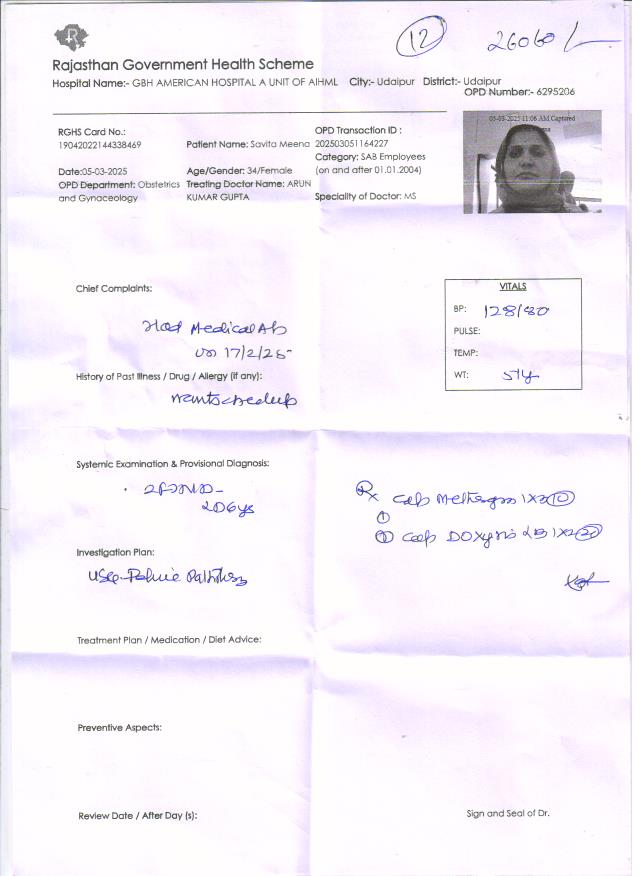 12 26060/-
Rajasthan Government Health Scheme
Hospital Name:- GBH AMERICAN HOSPITAL A UNIT OF AIHML City:- Udaipur District:- Udaipur
OPD Number:- 6295206
05-03-2025 11:06 AM Captured
RGHS Card No.:
19042022144338469
Patient Name: Savita Meena
OPD Transaction ID :
202503051164227
Category: SAB Employees
(on and after 01.01.2004)
Date:05-03-2025
Age/Gender: 34/Female
OPD Department: Obstetrics
and Gynaceology
Treating Doctor Name: ARUN
KUMAR GUPTA
Speciality of Doctor: MS
Chief Complaints:
Had Medical Ab
on 17/2/25
VITALS
BP: 128/80
PULSE:
TEMP:
WT:
History of Past Illness / Drug / Allergy (if any):
wants checkup
Systemic Examination & Provisional Diagnosis:
Rx Cap 1x 10
1
2 Cap 1x 20
Investigation Plan:
USG
Treatment Plan / Medication / Diet Advice:
Preventive Aspects:
Review Date / After Day (s):
Sign and Seal of Dr.